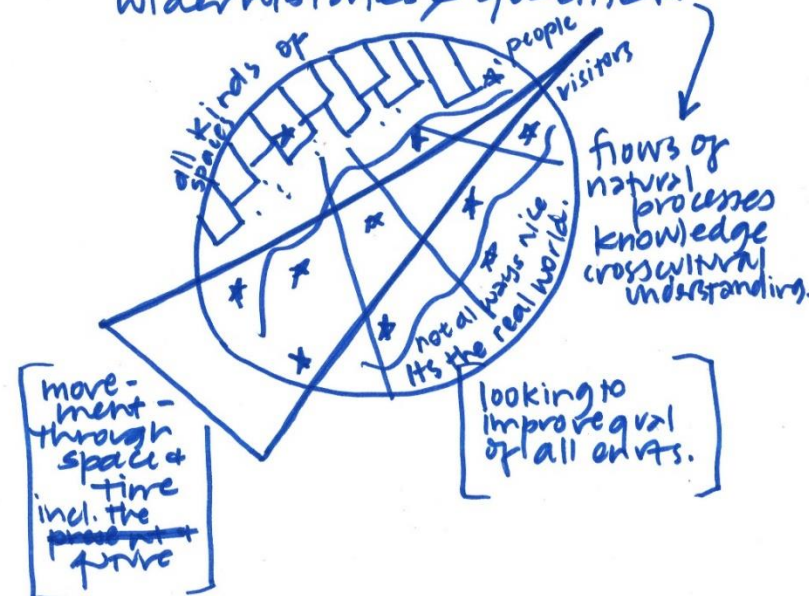 all kinds of
spaces
people
visitors
flows of
natural
processes
knowledge
crosscultural
understanding.
not always nice
Its the real world.
move-
ment-
through
space &
time
incl. the
future
looking to
improve qual
of all